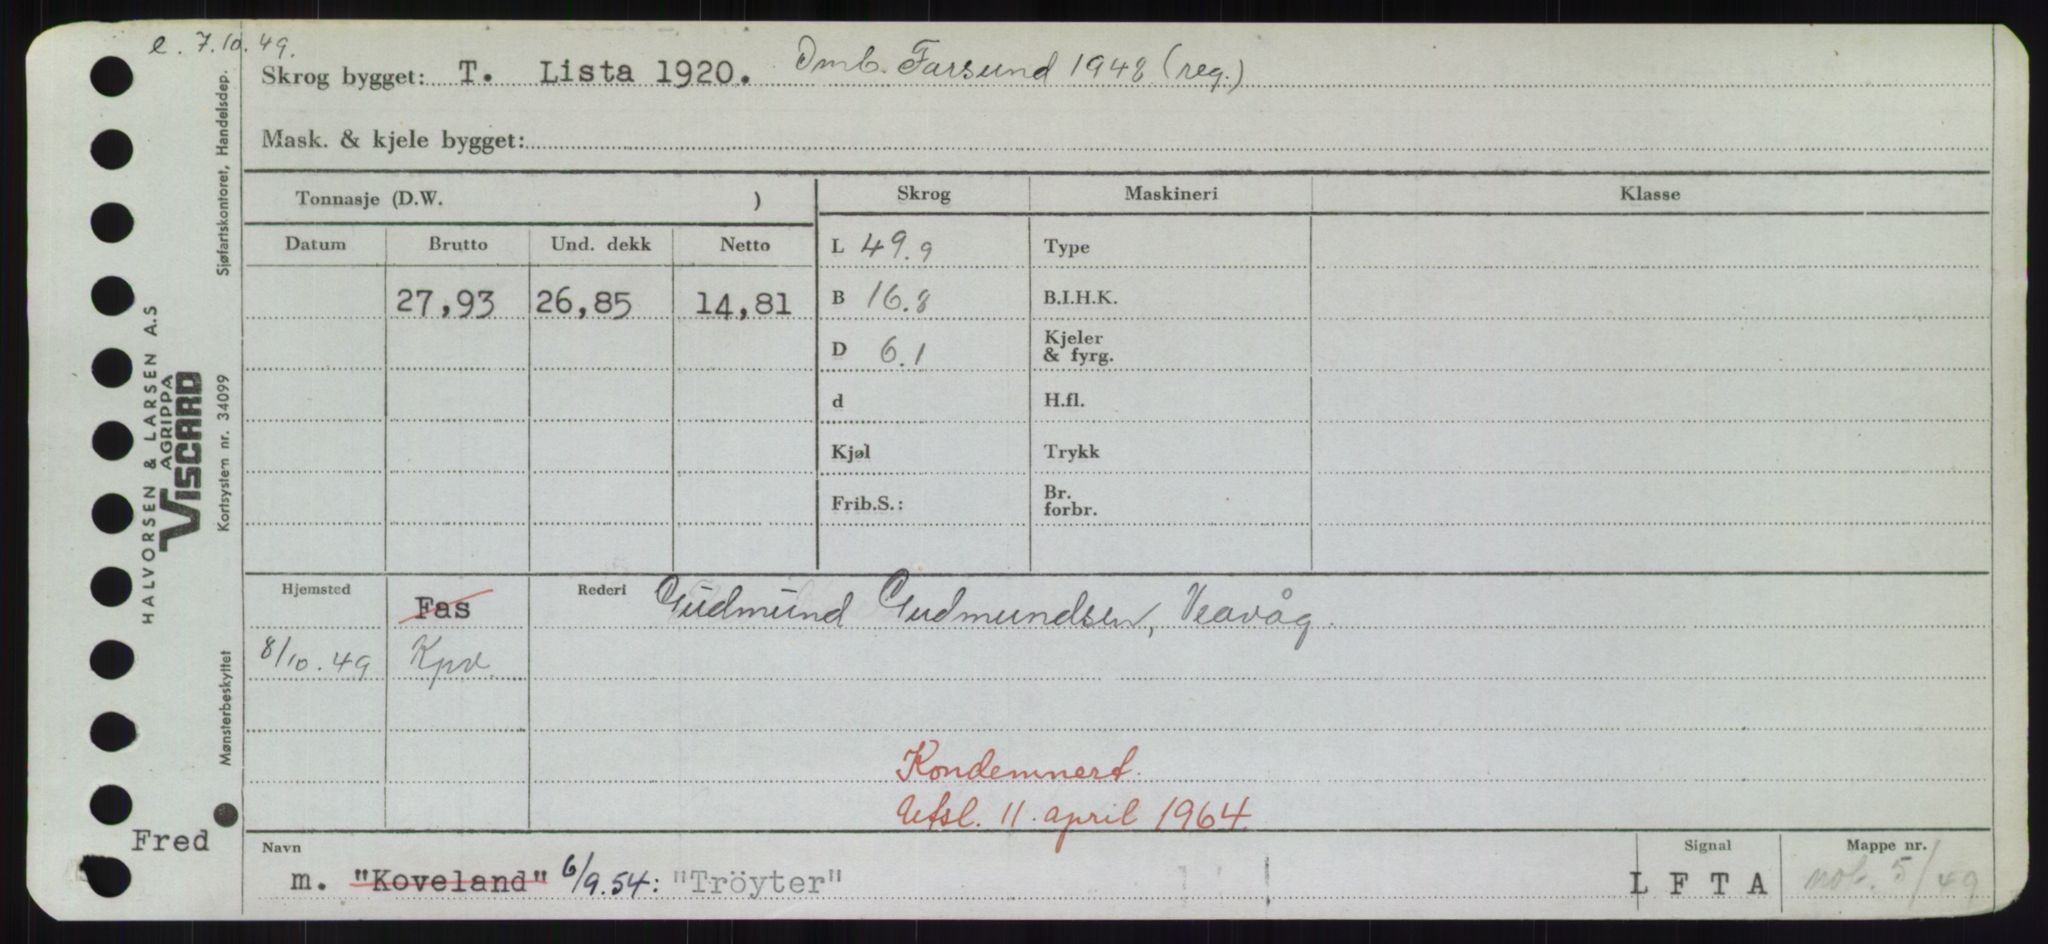 e. 7.10.49.
Skrog bygget: T. Lista 1920. Omb. Farsund 1948 (reg.)
Mask. & kjele bygget:
Tonnasje (D.W. )
Skrog Maskineri Klasse
Datum Brutto Und. dekk Netto
27,93 26,85 14,81
L 49.9 Type
B 16.8 B.I.H.K.
D 6.1 Kjeler & fyrg.
d H.fl.
Kjøl Trykk
Frib.S.: Br. forbr.
Hjemsted Fas Rederi Gudmund Gudmundsen, Veavåg.
8/10.49 Kpv.
Kondemnert.
Utsl. 11. april 1964.
Navn Signal Mappe nr.
m. "Koveland" 6/9.54: "Tröyter" L F T A not. 5/49
Fred
HALVORSEN & LARSEN A.S
AGRIPPA
VISCARD
Mønsterbeskyttet Kortsystem nr. 34099 Sjøfartskontoret, Handelsdep.